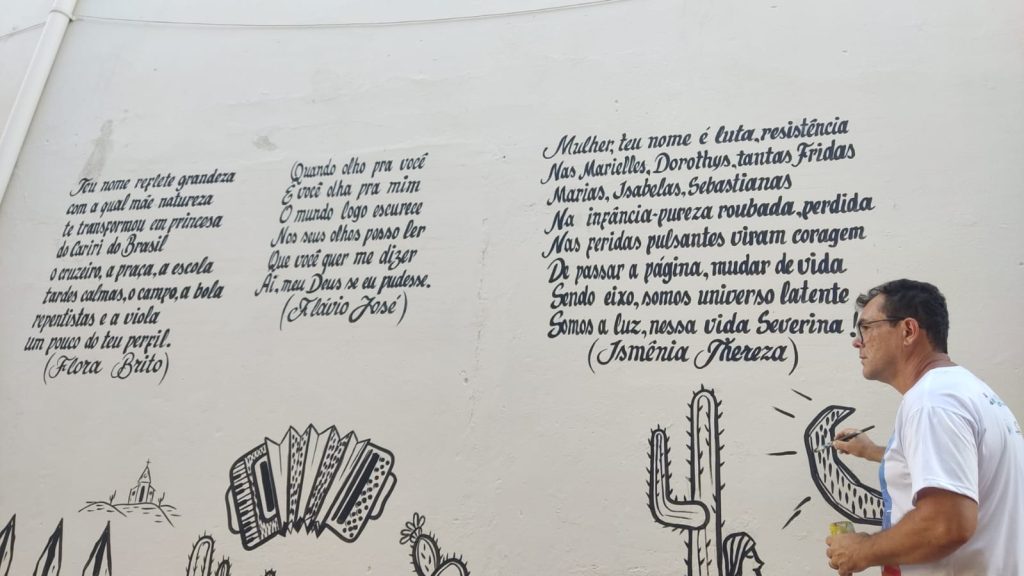 Teu nome reflete grandeza
com a qual mãe natureza
te transformou em princesa
do Cariri do Brasil
o cruzeiro, a praça, a escola
tardes calmas, o campo, a bola
repentistas e a viola
um pouco do teu perfil.
(Flora Brito)
Quando olho pra você
E você olha pra mim
O mundo logo escurece
Nos seus olhos posso ler
Que você quer me dizer
Ai, meu Deus se eu pudesse.
(Flávio José)
Mulher, teu nome é luta, resistência
Nas Marielles, Dorothys, tantas Fridas
Marias, Isabelas, Sebastianas
Na infância-pureza roubada, perdida
Nas feridas pulsantes viram coragem
De passar a página, mudar de vida
Sendo eixo, somos universo latente
Somos a luz, nessa vida Severina !
(Ismênia Thereza)